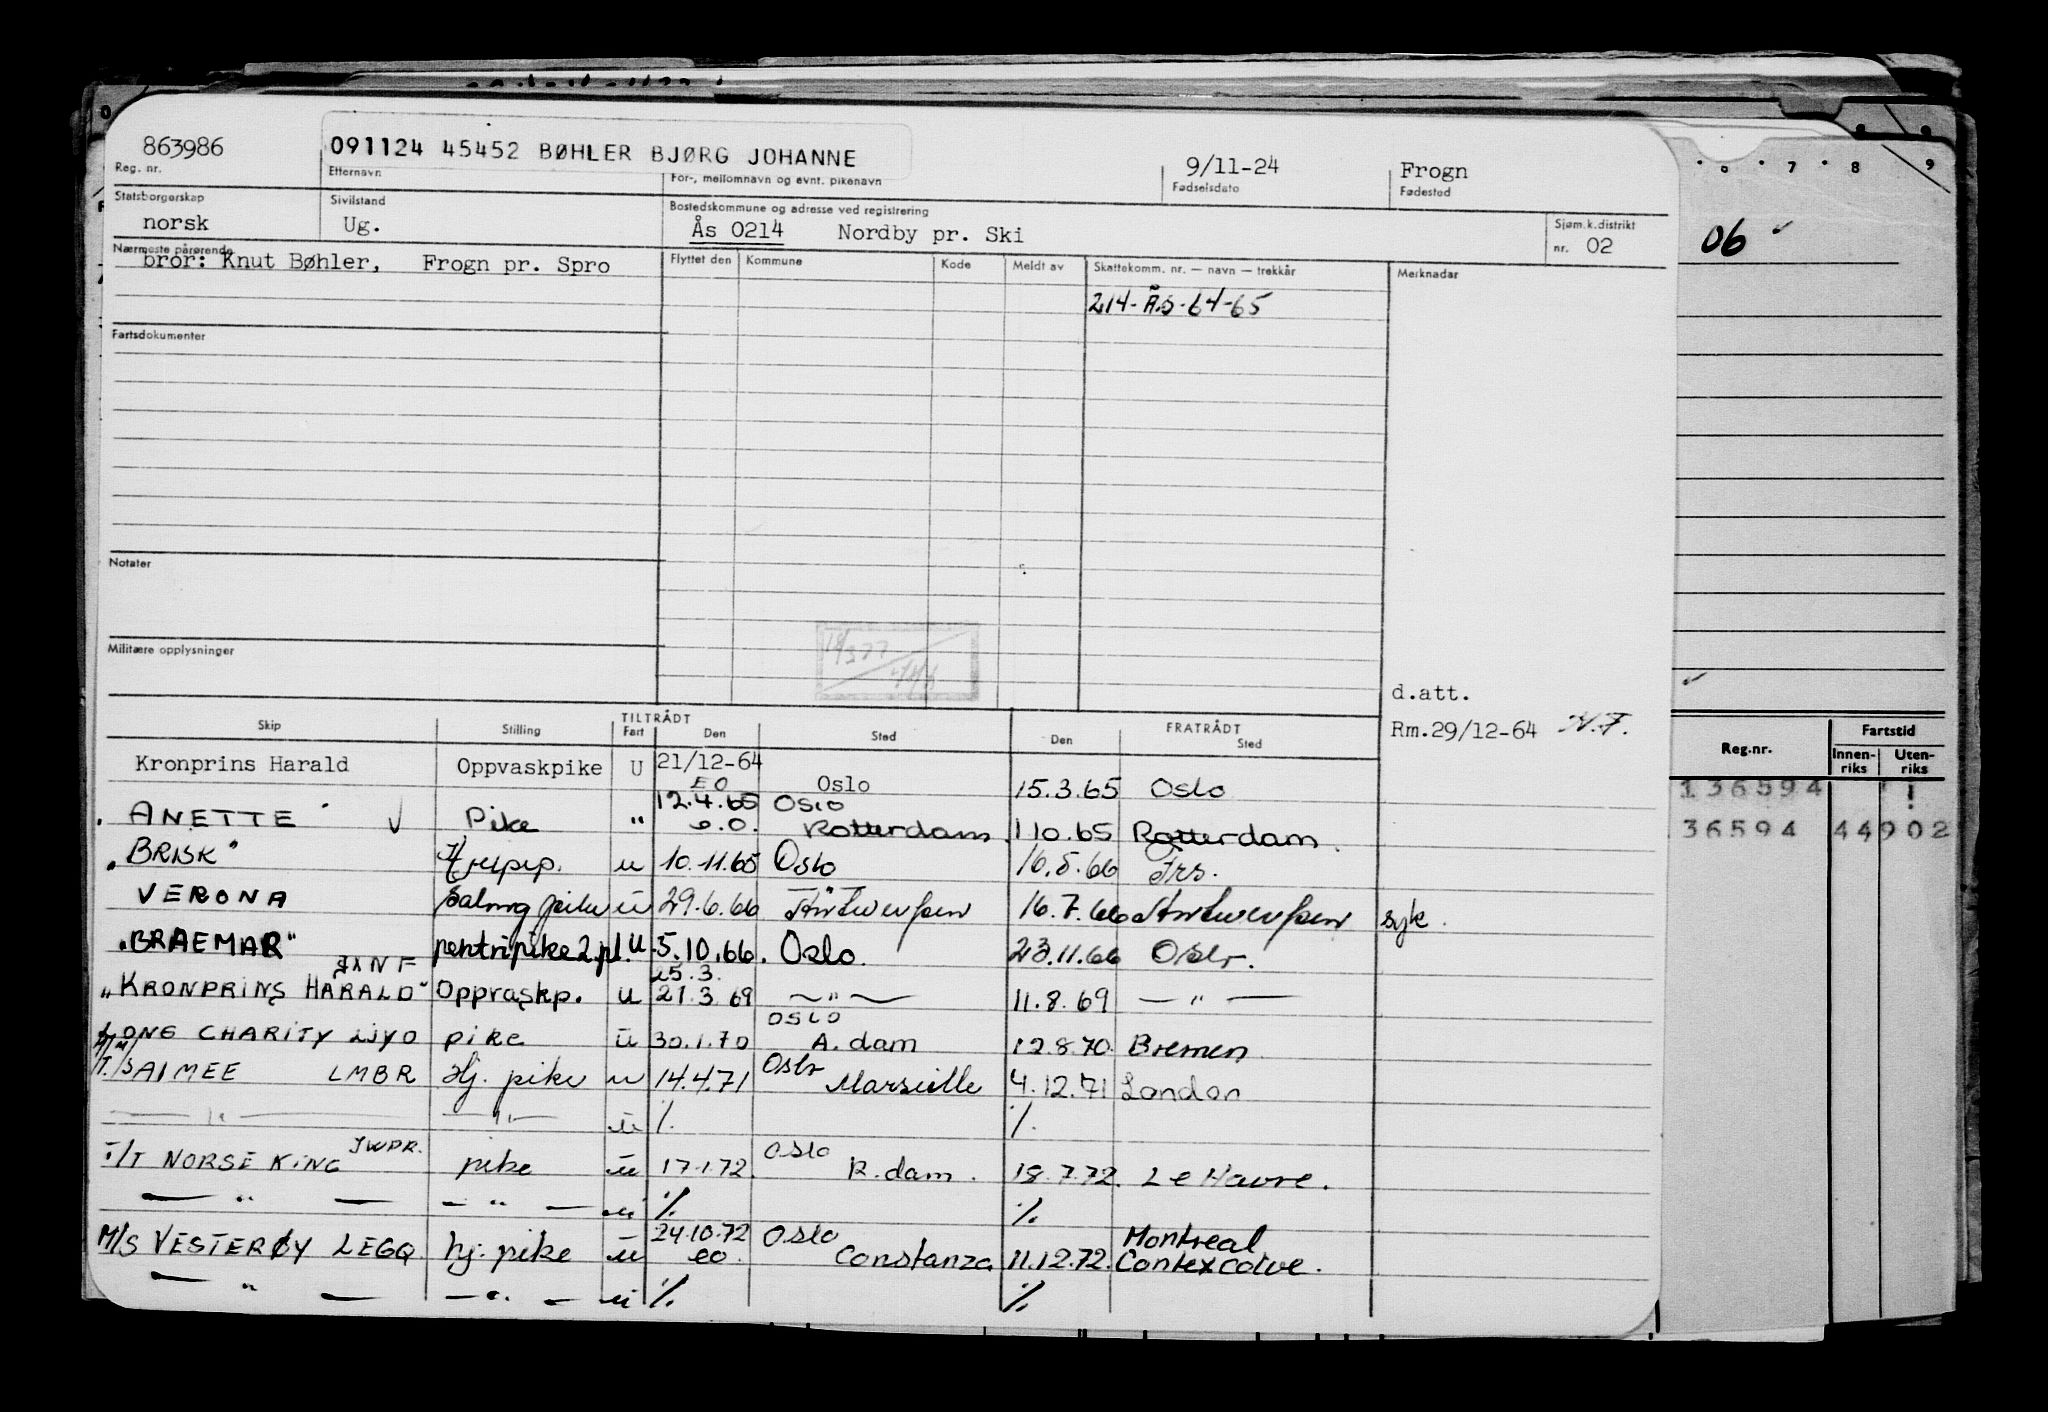 863986 091124 45452 BØHLER BJØRG JOHANNE 9/11-24 Frogn
Reg. nr. Etternavn For-, mellomnavn og evnt. pikenavn Fødselsdato Fødested
Statsborgerskap Sivilstand Bostedskommune og adresse ved registrering Sjøm.k.distrikt
norsk Ug. Ås 0214 Nordby pr. Ski nr. 02
Nærmeste pårørende Flyttet den Kommune Kode Meldt av Skattekomm. nr. — navn — trekkår Merknader
bror: Knut Bøhler, Frogn pr. Spro
214-Ås-64-65
Fartsdokumenter
Notater
Militære opplysninger
d.att.
Rm.29/12-64 N.F.
TILTRÅDT FRATRÅDT
Skip Stilling Fart Den Sted Den Sted
Kronprins Harald Oppvaskpike U 21/12-64 EO Oslo 15.3.65 Oslo
ANETTE Pike " 12.4.65 e.o. Oslo Rotterdam 1 10.65 Rotterdam.
"BRISK" Hjelpep. u 10.11.65 Oslo 16.5.66 Trs.
VERONA Salong pike u 29.6.66 Antwerpen 16.7.66 Antwerpen syk.
"BRAEMAR" pentripike 2.pl. u 5.10.66. Oslo. 23.11.66 Oslo.
"KRONPRINS HARALD" JXNF Oppvaskp. u 25.3. 21.3.69 — " — 11.8.69 — " —
LONG CHARITY LJYO pike u 30.1.70 OSLO A.dam 12.8.70. Bremen
AIMEE LMBR Hj. pike u 14.4.71 Oslo Marseille 4.12.71 London
— " — — " — u %. %.
T/T NORSE KING JWPR. pike u 17.1.72. OSLO R.dam. 18.7.72. Le Havre.
— " — — " — u %. %.
M/S VESTERØY LEGQ. hj. pike u 24.10.72 eo. Oslo Constanza 11.12.72. Montreal Contexcotve.
— " — — " — u %. %.
7 8 9
06
Reg.nr. Fartstid
Innen-riks Uten-riks
136594 !
36594 44902